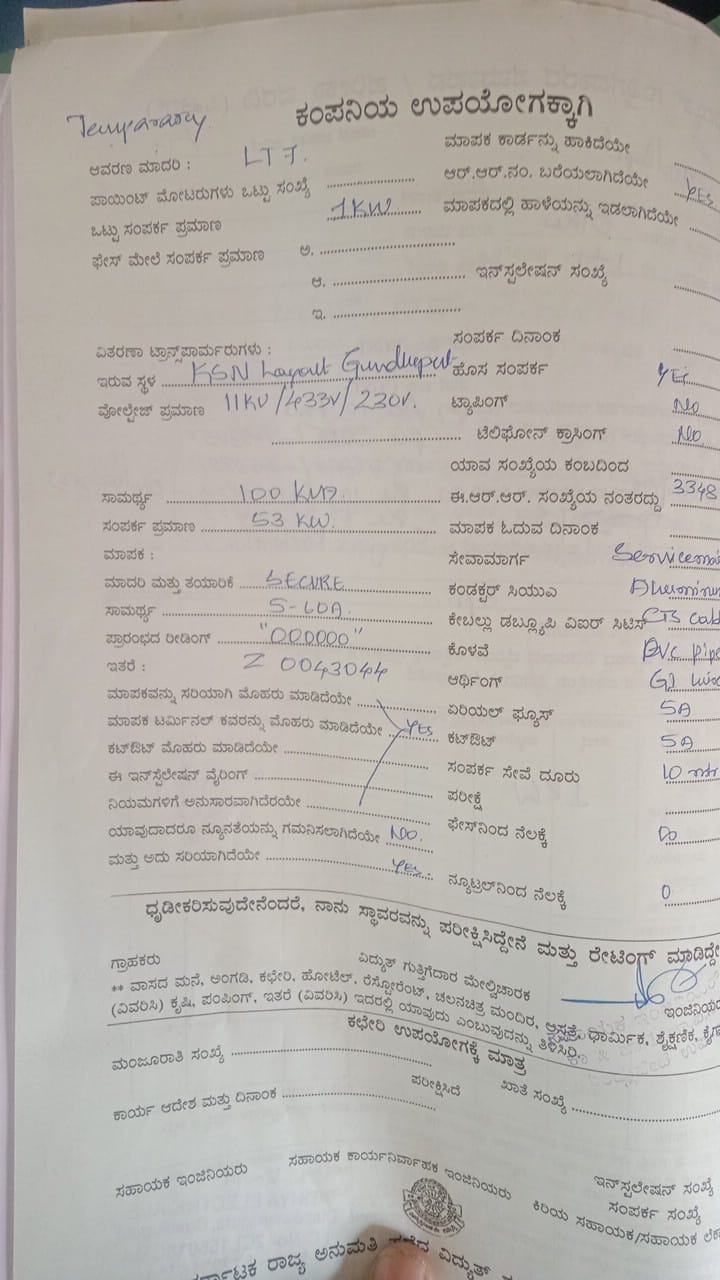 Temporary
ಕಂಪನಿಯ ಉಪಯೋಗಕ್ಕಾಗಿ
ಆವರಣ ಮಾದರಿ : LT 7.
ಮಾಪಕ ಕಾರ್ಡನ್ನು ಹಾಕಿದೆಯೇ
ಪಾಯಿಂಟ್ ಮೋಟರುಗಳು ಒಟ್ಟು ಸಂಖ್ಯೆ
ಆರ್.ಆರ್.ನಂ. ಬರೆಯಲಾಗಿದೆಯೇ YES
ಒಟ್ಟು ಸಂಪರ್ಕ ಪ್ರಮಾಣ 1KW
ಮಾಪಕದಲ್ಲಿ ಹಾಳೆಯನ್ನು ಇಡಲಾಗಿದೆಯೇ
ಫೇಸ್ ಮೇಲೆ ಸಂಪರ್ಕ ಪ್ರಮಾಣ ಅ.
ಆ. ಇನ್‌ಸ್ಪಲೇಷನ್ ಸಂಖ್ಯೆ
ಇ.
ಸಂಪರ್ಕ ದಿನಾಂಕ
ವಿತರಣಾ ಟ್ರಾನ್ಸ್‌ಪಾರ್ಮರುಗಳು :
ಇರುವ ಸ್ಥಳ KSN Layout Gundlupet ಹೊಸ ಸಂಪರ್ಕ YES
ವೋಲ್ಟೇಜ್ ಪ್ರಮಾಣ 11KV/433V/230V. ಟ್ಯಾಪಿಂಗ್ NO
ಟೆಲಿಫೋನ್ ಕ್ರಾಸಿಂಗ್ NO
ಯಾವ ಸಂಖ್ಯೆಯ ಕಂಬದಿಂದ
ಸಾಮರ್ಥ್ಯ 100 KVA. ಈ.ಆರ್.ಆರ್. ಸಂಖ್ಯೆಯ ನಂತರದ್ದು 3348
ಸಂಪರ್ಕ ಪ್ರಮಾಣ 53 KW. ಮಾಪಕ ಓದುವ ದಿನಾಂಕ
ಮಾಪಕ : ಸೇವಾಮಾರ್ಗ
ಮಾದರಿ ಮತ್ತು ತಯಾರಿಕೆ SECURE ಕಂಡಕ್ಟರ್ ಸಿಯುಎ
ಸಾಮರ್ಥ್ಯ 5-60A. ಕೇಬಲ್ಲು ಡಬ್ಲ್ಯೂಪಿ ವಿಐರ್ ಸಿಟಿಸ್
ಪ್ರಾರಂಭದ ರೀಡಿಂಗ್ "000000" ಕೊಳವೆ PVC pipe
ಇತರೆ : Z 0043044 ಆರ್ಥಿಂಗ್ GI
ಮಾಪಕವನ್ನು ಸರಿಯಾಗಿ ಮೊಹರು ಮಾಡಿದೆಯೇ ಏರಿಯಲ್ ಫ್ಯೂಸ್ 5A
ಮಾಪಕ ಟರ್ಮಿನಲ್ ಕವರನ್ನು ಮೊಹರು ಮಾಡಿದೆಯೇ YES ಕಟ್‌ಔಟ್ 5A
ಕಟ್‌ಔಟ್ ಮೊಹರು ಮಾಡಿದೆಯೇ ಸಂಪರ್ಕ ಸೇವೆ ದೂರು 10 mtr
ಈ ಇನ್‌ಸ್ಪೆಲೇಷನ್ ವೈರಿಂಗ್ ಪರೀಕ್ಷೆ
ನಿಯಮಗಳಿಗೆ ಅನುಸಾರವಾಗಿದೆರಯೇ ಫೇಸ್‌ನಿಂದ ನೆಲಕ್ಕೆ
ಯಾವುದಾದರೂ ನ್ಯೂನತೆಯನ್ನು ಗಮನಿಸಲಾಗಿದೆಯೇ NO.
ಮತ್ತು ಅದು ಸರಿಯಾಗಿದೆಯೇ YES. ನ್ಯೂಟ್ರಲ್‌ನಿಂದ ನೆಲಕ್ಕೆ 0
ಧೃಡೀಕರಿಸುವುದೇನೆಂದರೆ, ನಾನು ಸ್ಥಾವರವನ್ನು ಪರೀಕ್ಷಿಸಿದ್ದೇನೆ ಮತ್ತು ರೇಟಿಂಗ್ ಮಾಡಿದ್ದೇ
ಗ್ರಾಹಕರು ವಿದ್ಯುತ್ ಗುತ್ತಿಗೆದಾರ ಮೇಲ್ವಿಚಾರಕ ಇಂಜಿನಿಯರ
** ವಾಸದ ಮನೆ, ಅಂಗಡಿ, ಕಛೇರಿ, ಹೋಟೆಲ್, ರೆಸ್ಟೋರೆಂಟ್, ಚಲನಚಿತ್ರ ಮಂದಿರ, ಆಸ್ಪತ್ರೆ, ಧಾರ್ಮಿಕ, ಶೈಕ್ಷಣಿಕ, ಕೈಗಾ
(ವಿವರಿಸಿ) ಕೃಷಿ, ಪಂಪಿಂಗ್, ಇತರೆ (ವಿವರಿಸಿ) ಇದರಲ್ಲಿ ಯಾವುದು ಎಂಬುವುದನ್ನು ತಿಳಿಸಿರಿ.
ಕಛೇರಿ ಉಪಯೋಗಕ್ಕೆ ಮಾತ್ರ
ಮಂಜೂರಾತಿ ಸಂಖ್ಯೆ
ಪರೀಕ್ಷಿಸಿದೆ ಖಾತೆ ಸಂಖ್ಯೆ
ಕಾರ್ಯ ಆದೇಶ ಮತ್ತು ದಿನಾಂಕ
ಸಹಾಯಕ ಇಂಜಿನಿಯರು ಸಹಾಯಕ ಕಾರ್ಯನಿರ್ವಾಹಕ ಇಂಜಿನಿಯರು
ಇನ್‌ಸ್ಪಲೇಷನ್ ಸಂಖ್ಯೆ
ಸಂಪರ್ಕ ಸಂಖ್ಯೆ
ಕಿರಿಯ ಸಹಾಯಕ/ಸಹಾಯಕ ಲೆಕ
ರ್ನಾಟಕ ರಾಜ್ಯ ಅನುಮತಿ ಪಡೆದ ವಿದ್ಯುತ್